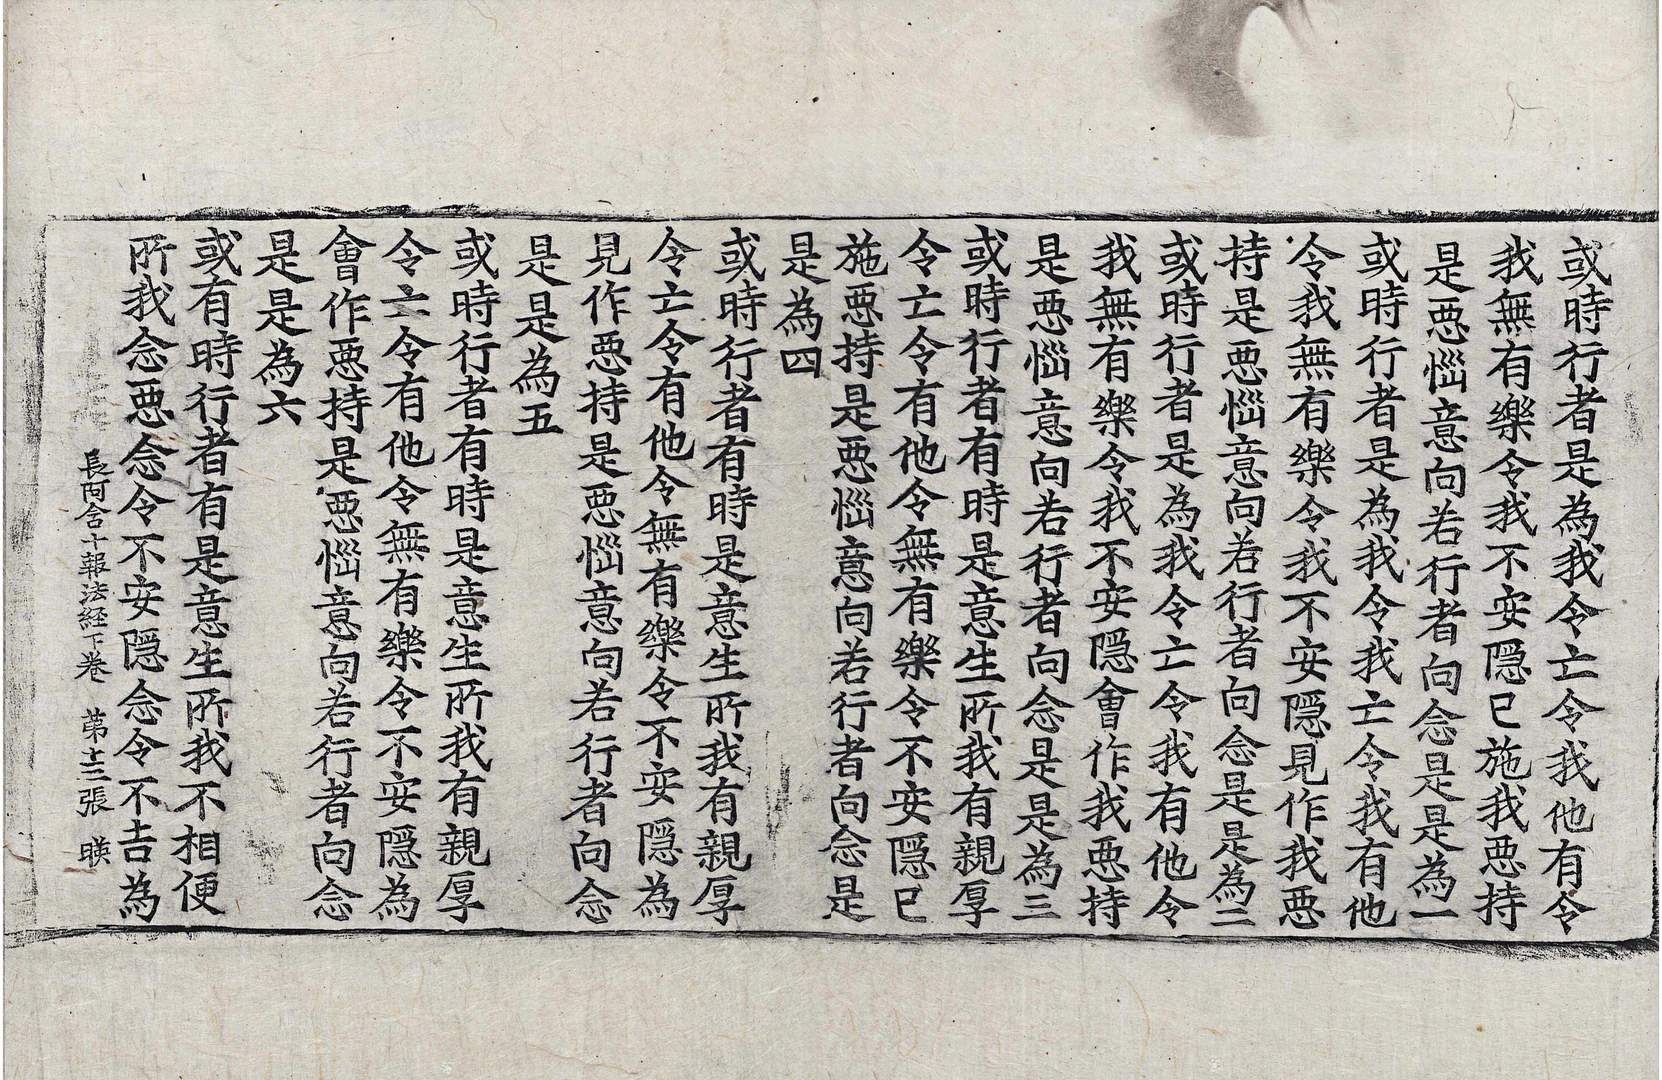 或時行者是為我令亡令我他有令
我無有樂令我不安隠已施我惡持
是惡惱意向若行者向念是是為一
或時行者是為我令我亡令我有他
令我無有樂令我不安隠見作我惡
持是惡惱意向若行者向念是是為二
或時行者是為我令亡令我有他令
我無有樂令我不安隠會作我惡持
是惡惱意向若行者向念是是為三
或時行者有時是意生所我有親厚
令亡令有他令無有樂令不安隠已
施惡持是惡惱意向若行者向念是
是為四
或時行者有時是意生所我有親厚
令亡令有他令無有樂令不安隠為
見作惡持是惡惱意向若行者向念
是是為五
或時行者有時是意生所我有親厚
令亡令有他令無有樂令不安隠為
會作惡持是惡惱意向若行者向念
是是為六
或有時行者有是意生所我不相便
所我念惡念令不安隠念令不吉為
長阿含十報法経下卷 第十三張 暎